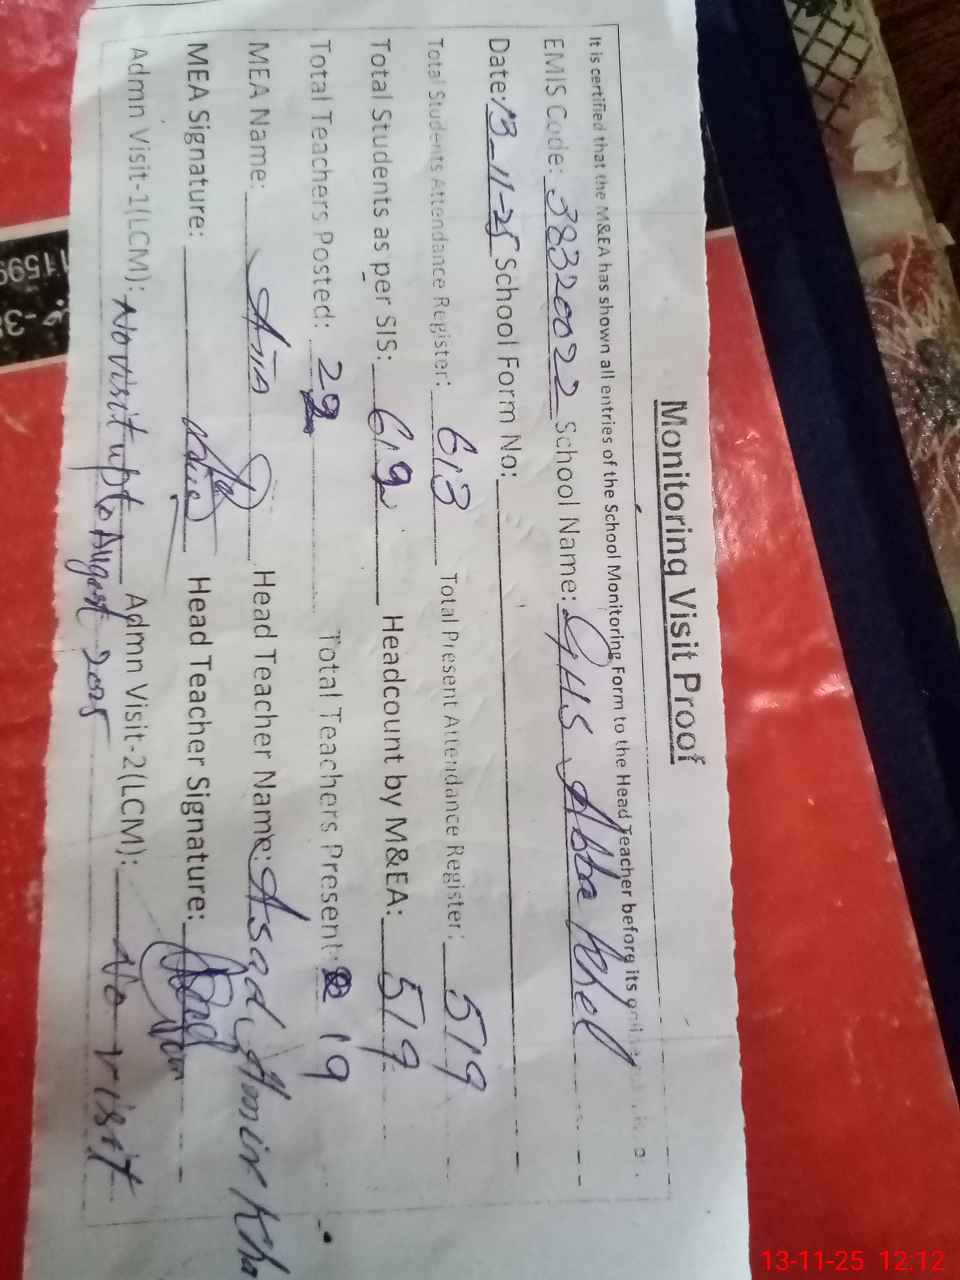 Monitoring Visit Proof
It is certified that the M&EA has shown all entries of the School Monitoring Form to the Head Teacher before its
EMIS Code: 38320022 School Name: GHS Abba Khel
Date: 13-11-25 School Form No:
Total Students Attendance Register: 613 Total Present Attendance Register: 519
Total Students as per SIS: 619 Headcount by M&EA: 519
Total Teachers Posted: 29 Total Teachers Present: 19
MEA Name: Head Teacher Name: Asad Amir Kha
MEA Signature: Head Teacher Signature:
Admn Visit-1(LCM): No visit upto August 2025 Admn Visit-2(LCM): No visit
11599
13-11-25 12:12